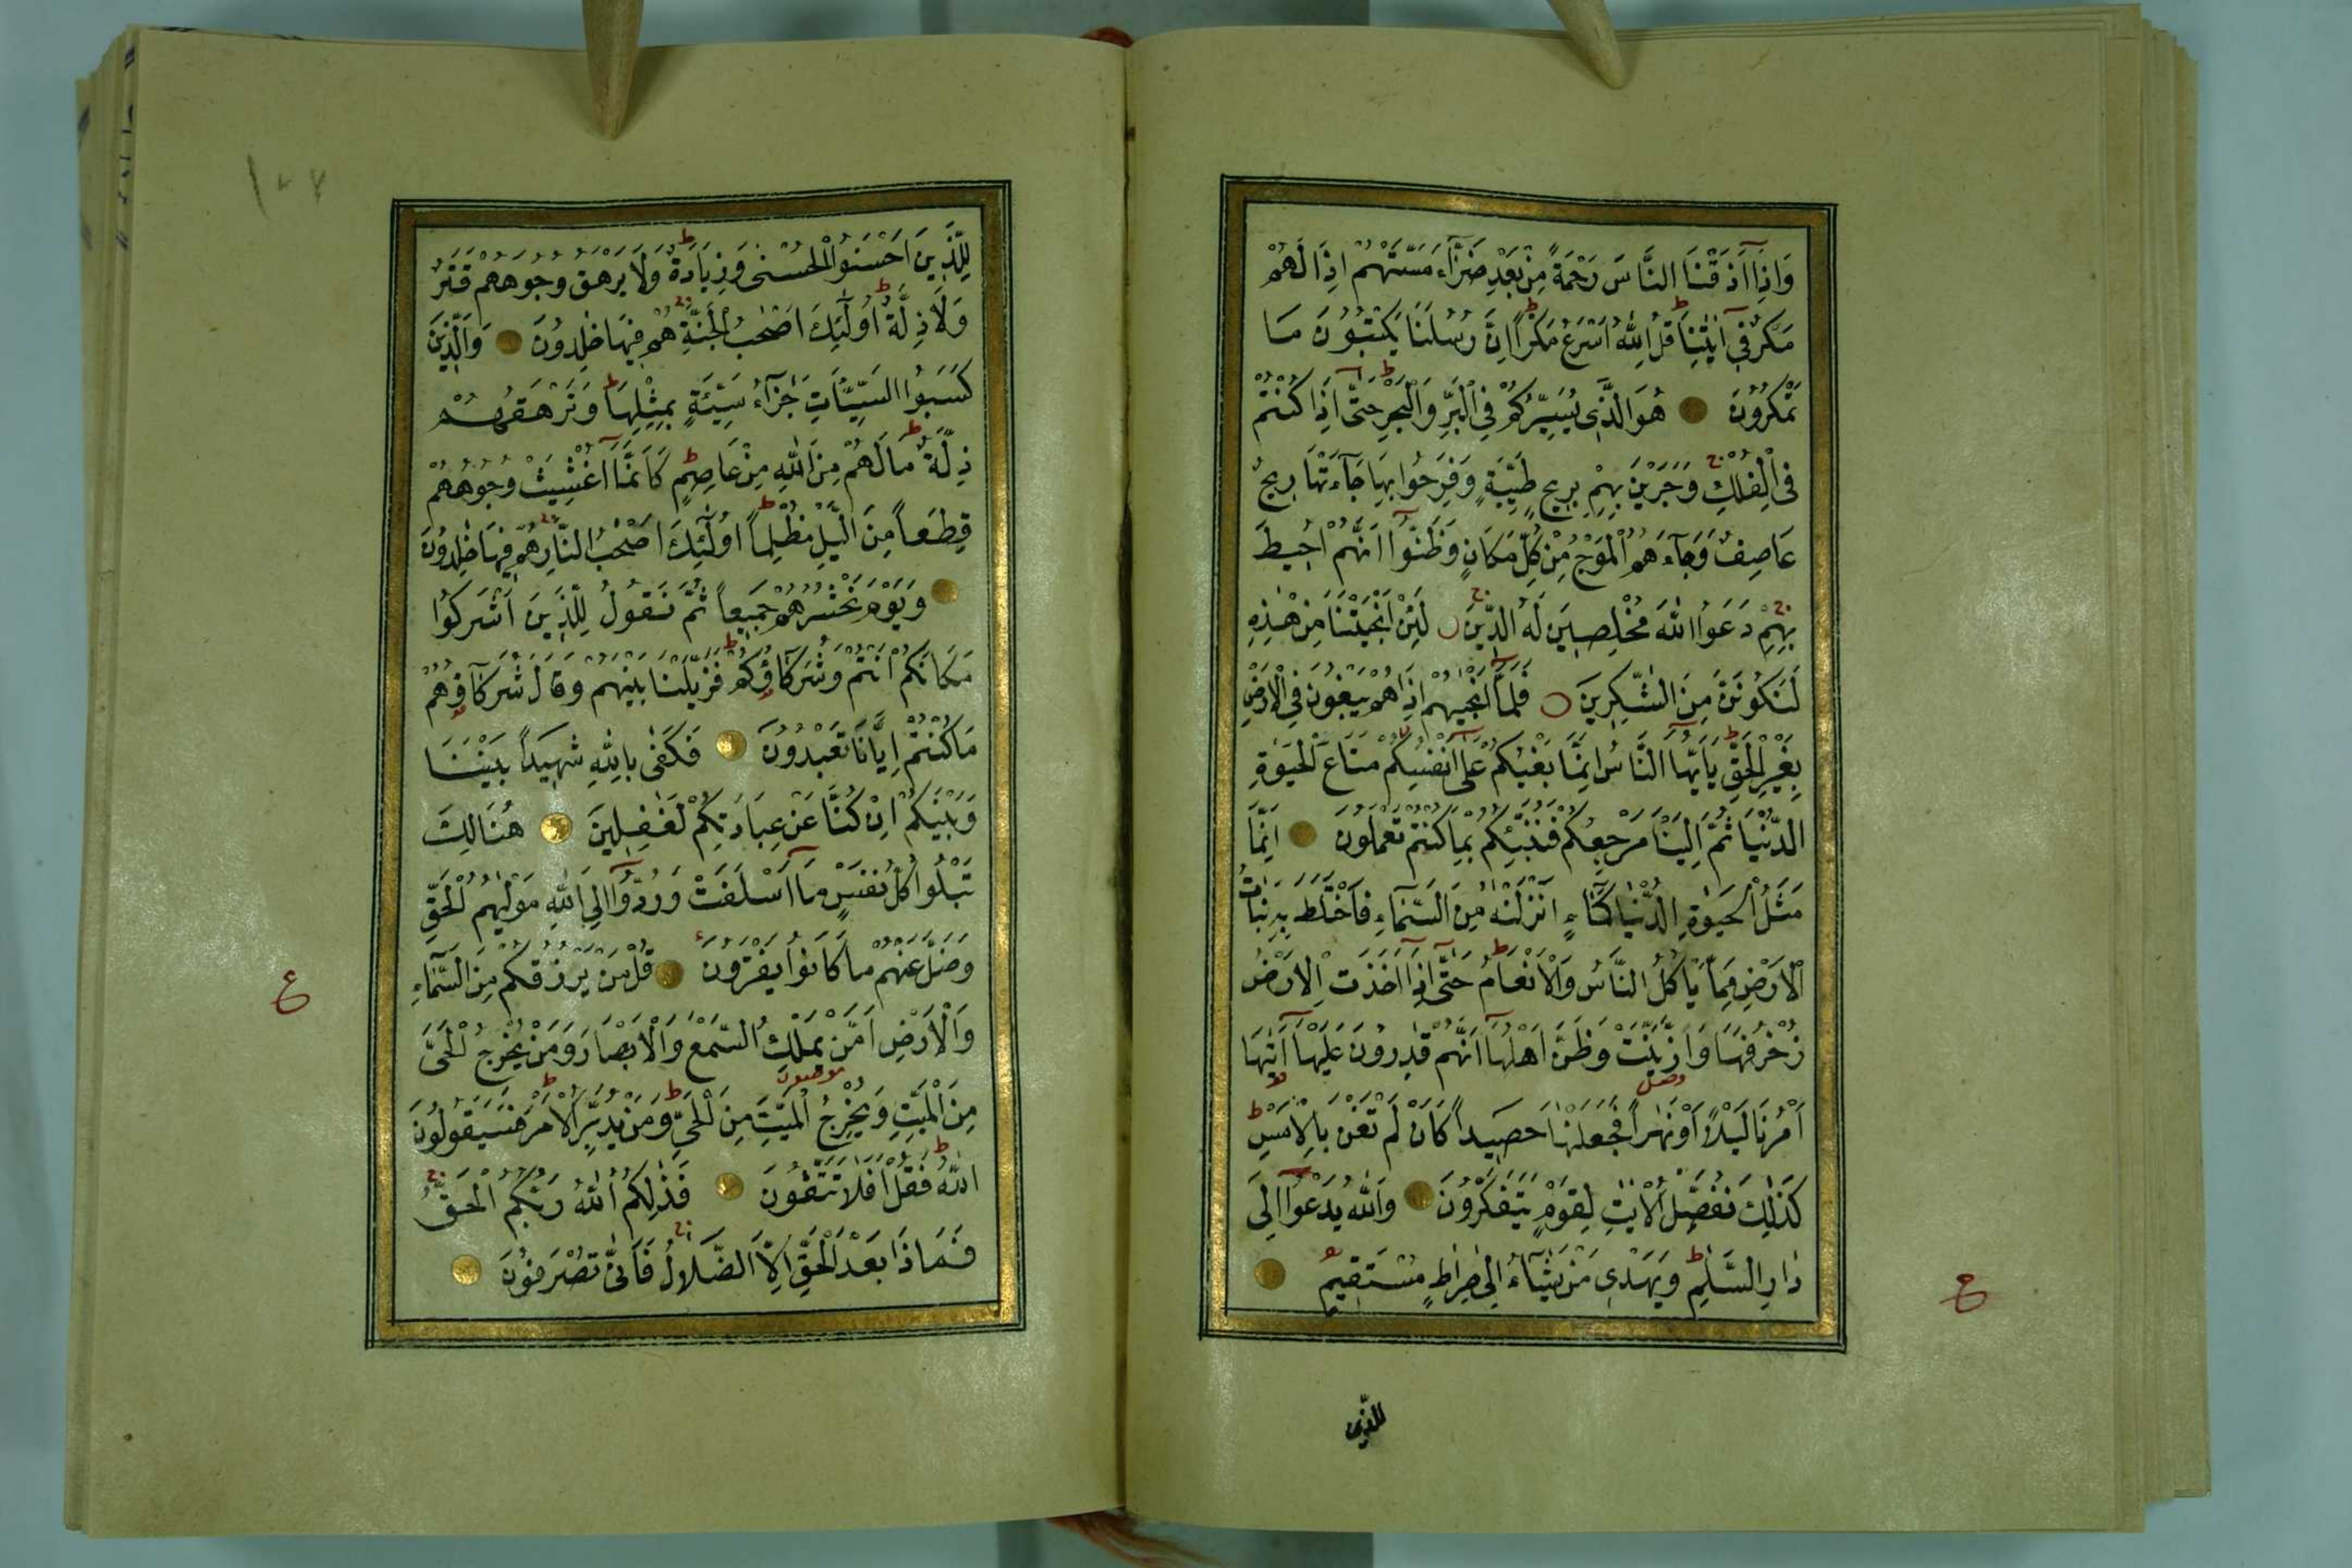 وَاِذَٓا اَذَقْنَا النَّاسَ رَحْمَةً مِنْ بَعْدِ ضَرَّٓاءَ مَسَّتْهُمْ اِذَا لَهُمْ
مَكْرٌ فِٓى اٰيَاتِنَا قُلِ اللّٰهُ اَسْرَعُ مَكْرًا اِنَّ رُسُلَنَا يَكْتُبُونَ مَا
تَمْكُرُونَ هُوَ الَّذِى يُسَيِّرُكُمْ فِى الْبَرِّ وَالْبَحْرِ حَتّٰٓى اِذَا كُنْتُمْ
فِى الْفُلْكِ وَجَرَيْنَ بِهِمْ بِرِيحٍ طَيِّبَةٍ وَفَرِحُوا بِهَا جَٓاءَتْهَا رِيحٌ
عَاصِفٌ وَجَٓاءَهُمُ الْمَوْجُ مِنْ كُلِّ مَكَانٍ وَظَنُّٓوا اَنَّهُمْ اُحِيطَ
بِهِمْ دَعَوُا اللّٰهَ مُخْلِصِينَ لَهُ الدِّينَ لَئِنْ اَنْجَيْتَنَا مِنْ هٰذِهِ
لَنَكُونَنَّ مِنَ الشّٰكِرِينَ فَلَمَّٓا اَنْجٰيهُمْ اِذَا هُمْ يَبْغُونَ فِى الْاَرْضِ
بِغَيْرِ الْحَقِّ يَٓا اَيُّهَا النَّاسُ اِنَّمَا بَغْيُكُمْ عَلٰٓى اَنْفُسِكُمْ مَتَاعَ الْحَيٰوةِ
الدُّنْيَا ثُمَّ اِلَيْنَا مَرْجِعُكُمْ فَنُنَبِّئُكُمْ بِمَا كُنْتُمْ تَعْمَلُونَ اِنَّمَا
مَثَلُ الْحَيٰوةِ الدُّنْيَا كَمَٓاءٍ اَنْزَلْنٰهُ مِنَ السَّمَٓاءِ فَاخْتَلَطَ بِهِ نَبَاتُ
الْاَرْضِ مِمَّا يَاْكُلُ النَّاسُ وَالْاَنْعَامُ حَتّٰٓى اِذَٓا اَخَذَتِ الْاَرْضُ
زُخْرُفَهَا وَازَّيَّنَتْ وَظَنَّ اَهْلُهَٓا اَنَّهُمْ قٰدِرُونَ عَلَيْهَٓا اَتٰيهَٓا
اَمْرُنَا لَيْلًا اَوْ نَهَارًا فَجَعَلْنٰهَا حَصِيدًا كَاَنْ لَمْ تَغْنَ بِالْاَمْسِ
كَذٰلِكَ نُفَصِّلُ الْاٰيٰتِ لِقَوْمٍ يَتَفَكَّرُونَ وَاللّٰهُ يَدْعُٓوا اِلٰى
دَارِ السَّلٰمِ وَيَهْدِى مَنْ يَشَٓاءُ اِلٰى صِرَاطٍ مُسْتَقِيمٍ
ع
للذين
لِلَّذِينَ اَحْسَنُوا الْحُسْنٰى وَزِيَادَةٌ وَلَا يَرْهَقُ وُجُوهَهُمْ قَتَرٌ
وَلَا ذِلَّةٌ اُولٰٓئِكَ اَصْحٰبُ الْجَنَّةِ هُمْ فِيهَا خٰلِدُونَ وَالَّذِينَ
كَسَبُوا السَّيِّئَاتِ جَزَٓاءُ سَيِّئَةٍ بِمِثْلِهَا وَتَرْهَقُهُمْ
ذِلَّةٌ مَا لَهُمْ مِنَ اللّٰهِ مِنْ عَاصِمٍ كَاَنَّمَٓا اُغْشِيَتْ وُجُوهُهُمْ
قِطَعًا مِنَ الَّيْلِ مُظْلِمًا اُولٰٓئِكَ اَصْحٰبُ النَّارِ هُمْ فِيهَا خٰلِدُونَ
وَيَوْمَ نَحْشُرُهُمْ جَمِيعًا ثُمَّ نَقُولُ لِلَّذِينَ اَشْرَكُوا
مَكَانَكُمْ اَنْتُمْ وَشُرَكَٓاؤُكُمْ فَزَيَّلْنَا بَيْنَهُمْ وَقَالَ شُرَكَٓاؤُهُمْ
مَا كُنْتُمْ اِيَّانَا تَعْبُدُونَ فَكَفٰى بِاللّٰهِ شَهِيدًا بَيْنَنَا
وَبَيْنَكُمْ اِنْ كُنَّا عَنْ عِبَادَتِكُمْ لَغٰفِلِينَ هُنَالِكَ
تَبْلُوا كُلُّ نَفْسٍ مَٓا اَسْلَفَتْ وَرُدُّٓوا اِلَى اللّٰهِ مَوْلٰيهُمُ الْحَقِّ
وَضَلَّ عَنْهُمْ مَا كَانُوا يَفْتَرُونَ قُلْ مَنْ يَرْزُقُكُمْ مِنَ السَّمَٓاءِ
وَالْاَرْضِ اَمَّنْ يَمْلِكُ السَّمْعَ وَالْاَبْصَارَ وَمَنْ يُخْرِجُ الْحَىَّ
مِنَ الْمَيِّتِ وَيُخْرِجُ الْمَيِّتَ مِنَ الْحَىِّ وَمَنْ يُدَبِّرُ الْاَمْرَ فَسَيَقُولُونَ
اللّٰهُ فَقُلْ اَفَلَا تَتَّقُونَ فَذٰلِكُمُ اللّٰهُ رَبُّكُمُ الْحَقُّ
فَمَاذَا بَعْدَ الْحَقِّ اِلَّا الضَّلَالُ فَاَنّٰى تُصْرَفُونَ
ع